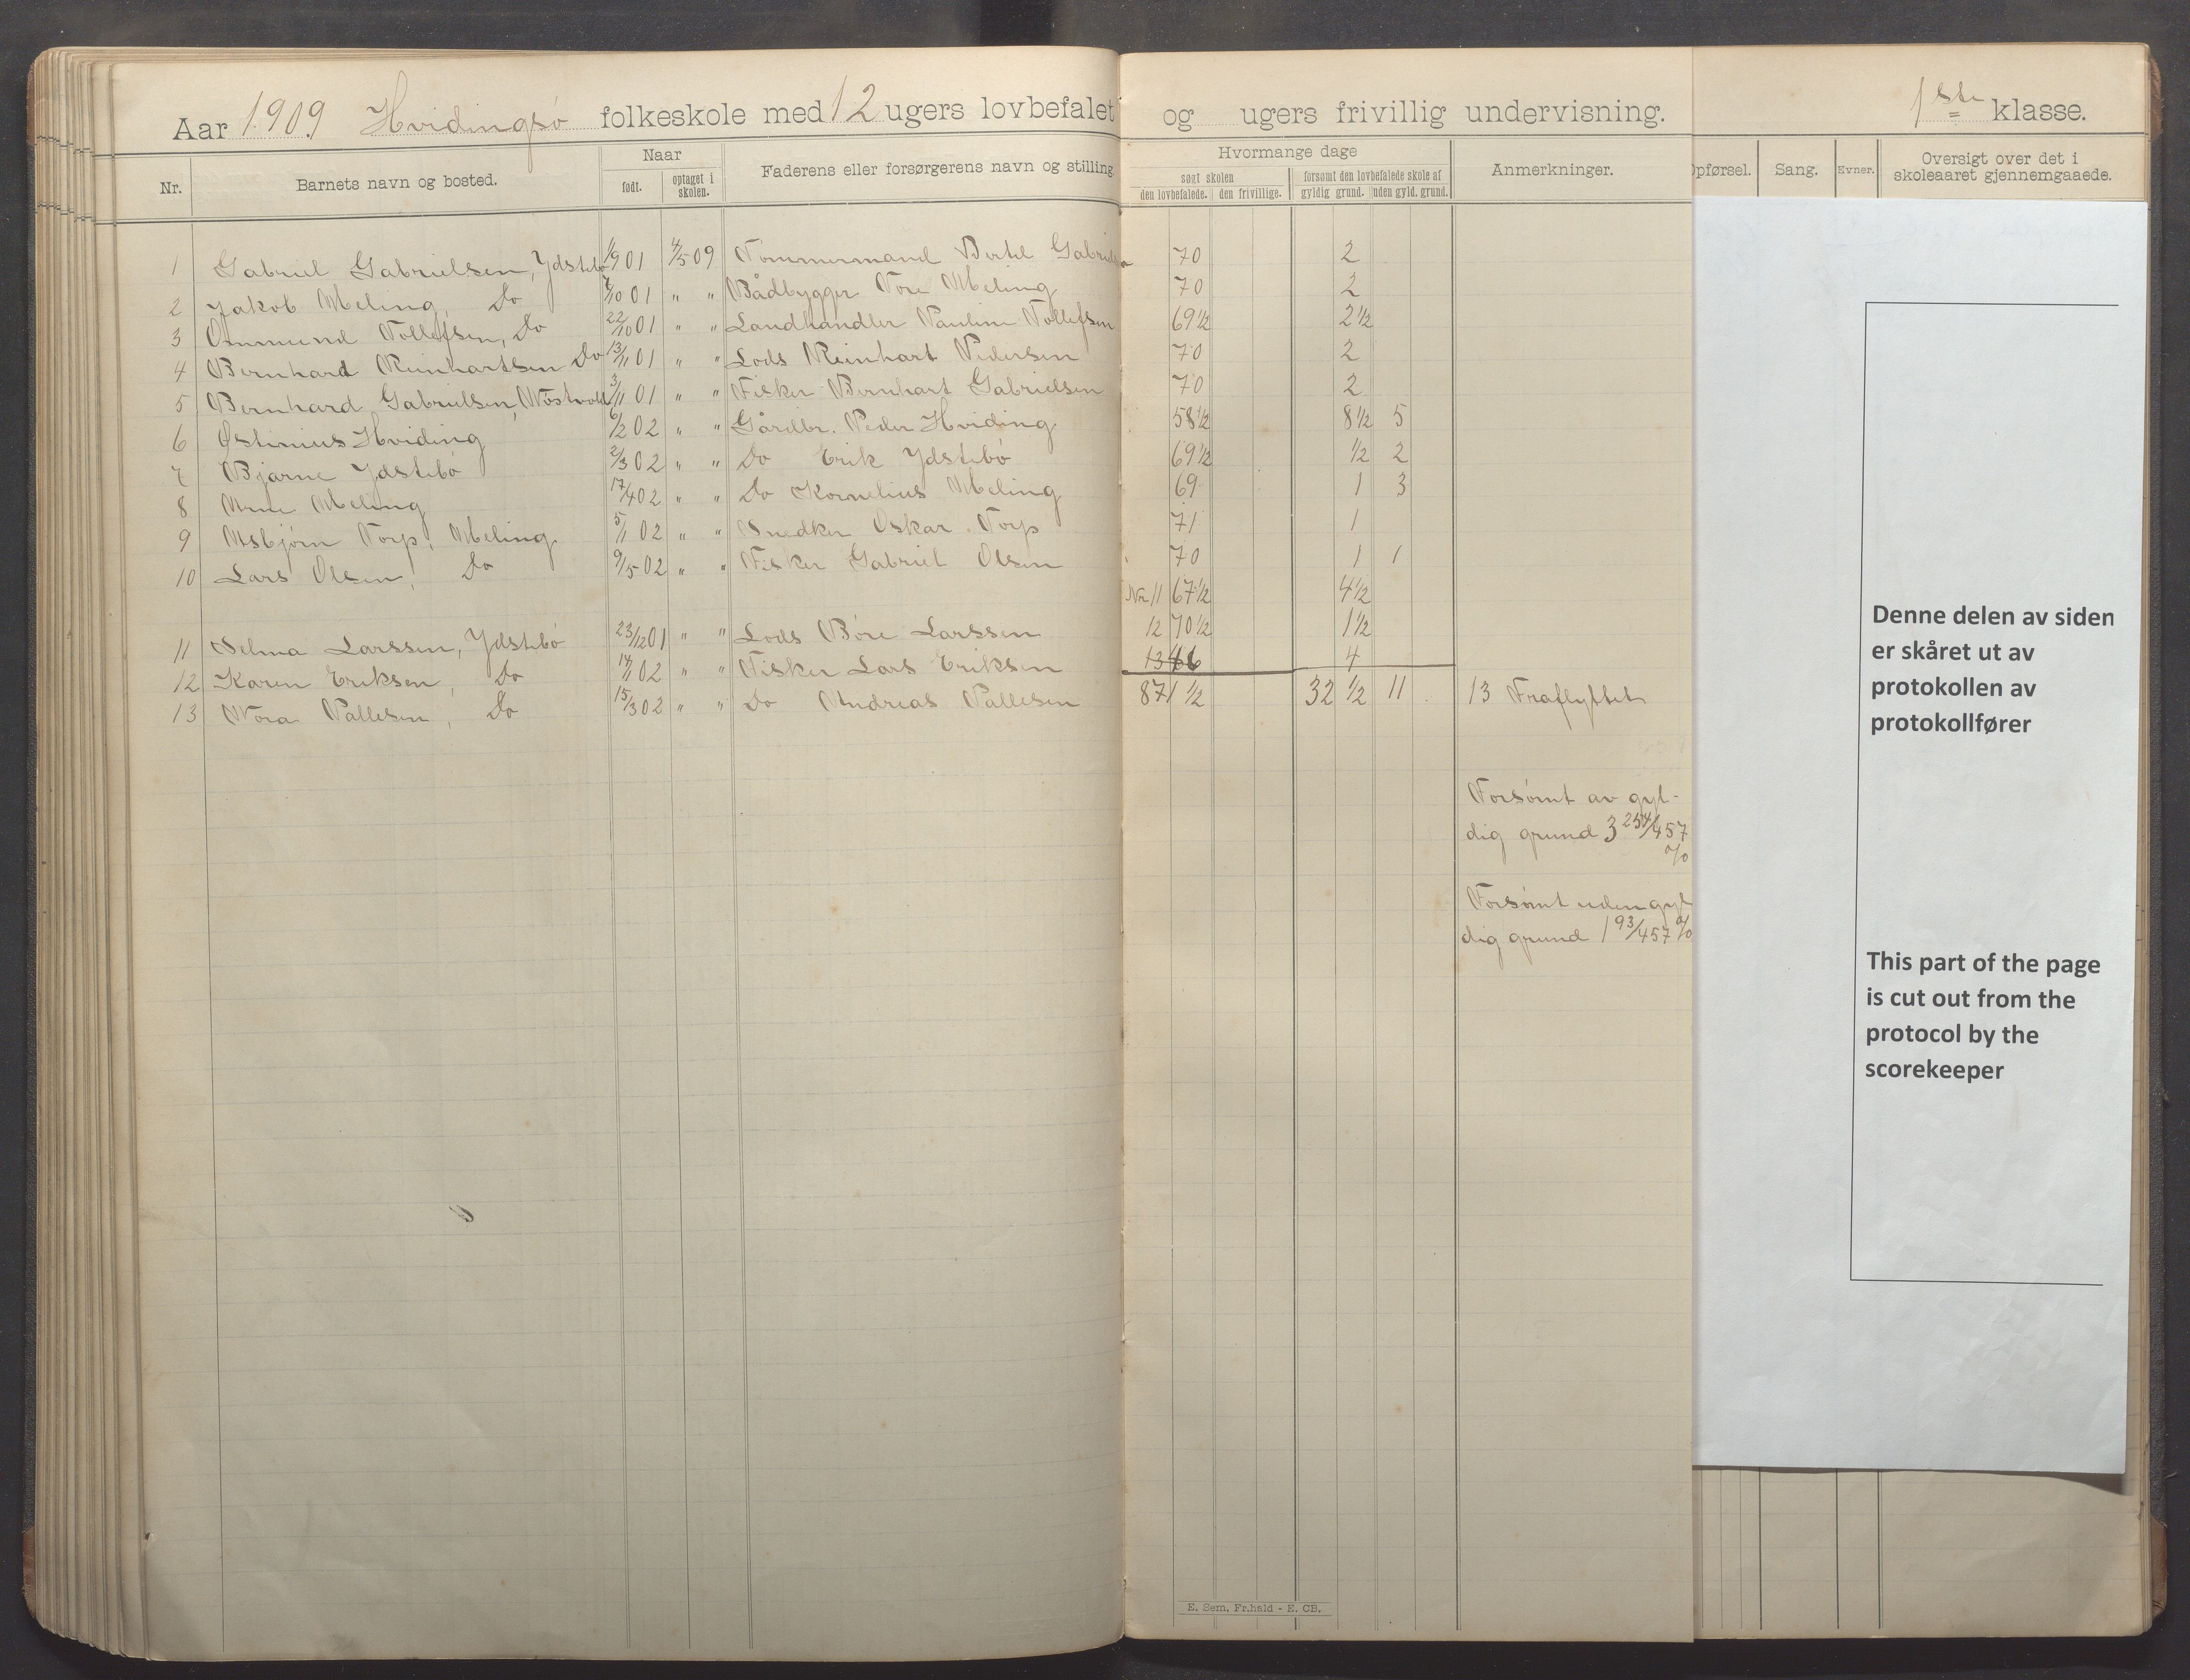 Aar 1909 Hvidingsö folkeskole med 12 ugers lovbefalet og ugers frivillig undervisning. 1ste klasse.
Nr. Barnets navn og bosted. Naar født. optaget i skolen. Faderens eller forsørgerens navn og stilling. Hvormange dage søgt skolen den lovbefalede. den frivillige. forsømt den lovbefalede skole af gyldig grund. uden gyld. grund. Anmerkninger. Opførsel. Sang. Evner. Oversigt over det i skoleaaret gjennemgaaede.
1 Gabriel Gabrielsen, Ydstebö 1/9 01 4/5 09 Tømmermand Bertel Gabrielsen 70 2
2 Jakob Meling, Do 7/10 01 " " Bådbygger Tore Meling 70 2
3 Ommund Tollefsen, Do 22/10 01 " " Landhandler Pauline Tollefsen 69 1/2 2 1/2
4 Bernhard Reinhartsen Do 13/11 01 " " Lods Reinhart Pedersen 70 2
5 Bernhard Gabrielsen, 3/11 01 " " Fisker Bernhart Gabrielsen 70 2
6 Østinius Hviding 6/2 02 " " Gårdbr. Peder Hviding 58 1/2 8 1/2 5
7 Bjarne Ydstebö 2/3 02 " " Do Erik Ydstebö 69 1/2 1/2 2
8 Arne Meling 17/4 02 " " Do Kornelius Meling 69 1 3
9 Asbjörn Torp, Meling 5/1 02 " " Snedker Oskar Torp 71 1
10 Lars Olsen, Do 9/5 02 " " Fisker Gabriel Olsen 70 1 1
Nr 11 67 1/2 4 1/2
11 Selma Larssen, Ydstebö 23/12 01 " " Lods Böre Larssen 12 70 1/2 1 1/2
12 Karen Eriksen, Do 14/1 02 " " Fisker Lars Eriksen 13 46 4
13 Nora Pallesen, Do 15/3 02 " " Do Andreas Pallesen 871 1/2 32 1/2 11 13 Fraflyttet
Forsömt av gyl-
dig grund 3 254/457
%
Forsömt uden gyl
dig grund 1 93/457 %
Denne delen av siden
er skåret ut av
protokollen av
protokollfører
This part of the page
is cut out from the
protocol by the
scorekeeper
E. Sem, Fr.hald - E. CB.